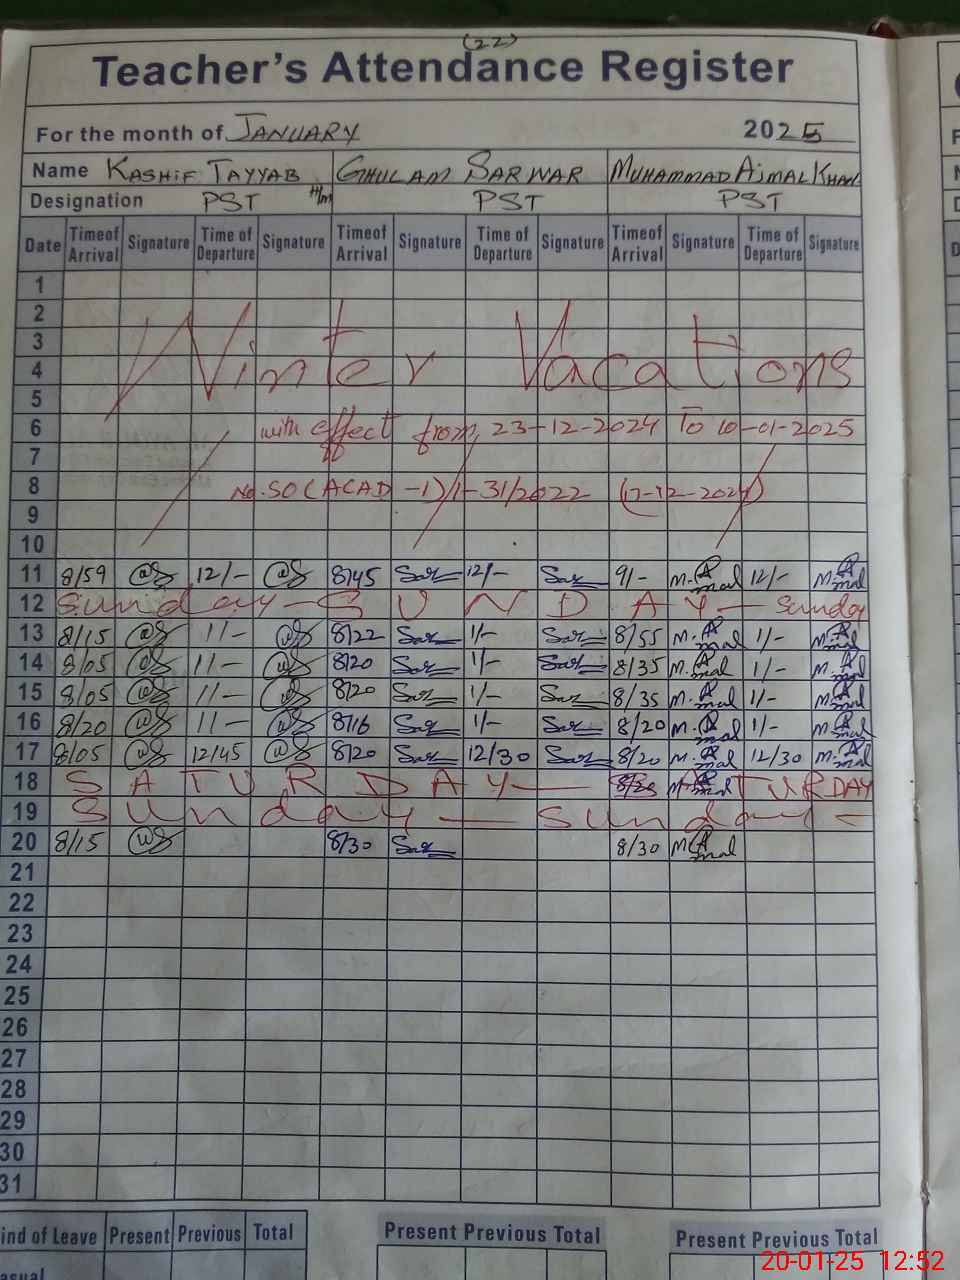 (22)
Teacher's Attendance Register
For the month of JANUARY 2025
Name KASHIF TAYYAB GHULAM SARWAR MUHAMMAD AJMAL KHAN
Designation PST H/m PST PST
Date Time of Arrival Signature Time of Departure Signature Time of Arrival Signature Time of Departure Signature Time of Arrival Signature Time of Departure Signature
1
2
3
4 Winter Vacations
5
6 with effect from 23-12-2024 To 10-01-2025
7
8 No. SO (ACAD-1)/1-31/2022 (17-12-2024)
9
10
11 8/59 12/- 8/45 Sar 12/- Sar 9/- M.Ajmal 12/- M.Ajmal
12 Sunday - SUNDAY - Sunday
13 8/15 1/- 8/22 Sar 1/- Sar 8/55 M.Ajmal 1/- M.Ajmal
14 8/05 1/- 8/20 Sar 1/- Sar 8/35 M.Ajmal 1/- M.Ajmal
15 8/05 1/- 8/20 Sar 1/- Sar 8/35 M.Ajmal 1/- M.Ajmal
16 8/20 1/- 8/16 Sar 1/- Sar 8/20 M.Ajmal 1/- M.Ajmal
17 8/05 12/45 8/20 Sar 12/30 Sar 8/20 M.Ajmal 12/30 M.Ajmal
18 SATURDAY - SATURDAY
19 Sunday - Sunday -
20 8/15 8/30 Sar 8/30 M.Ajmal
21
22
23
24
25
26
27
28
29
30
31
ind of Leave Present Previous Total Present Previous Total Present Previous Total
asual
20-01-25 12:52